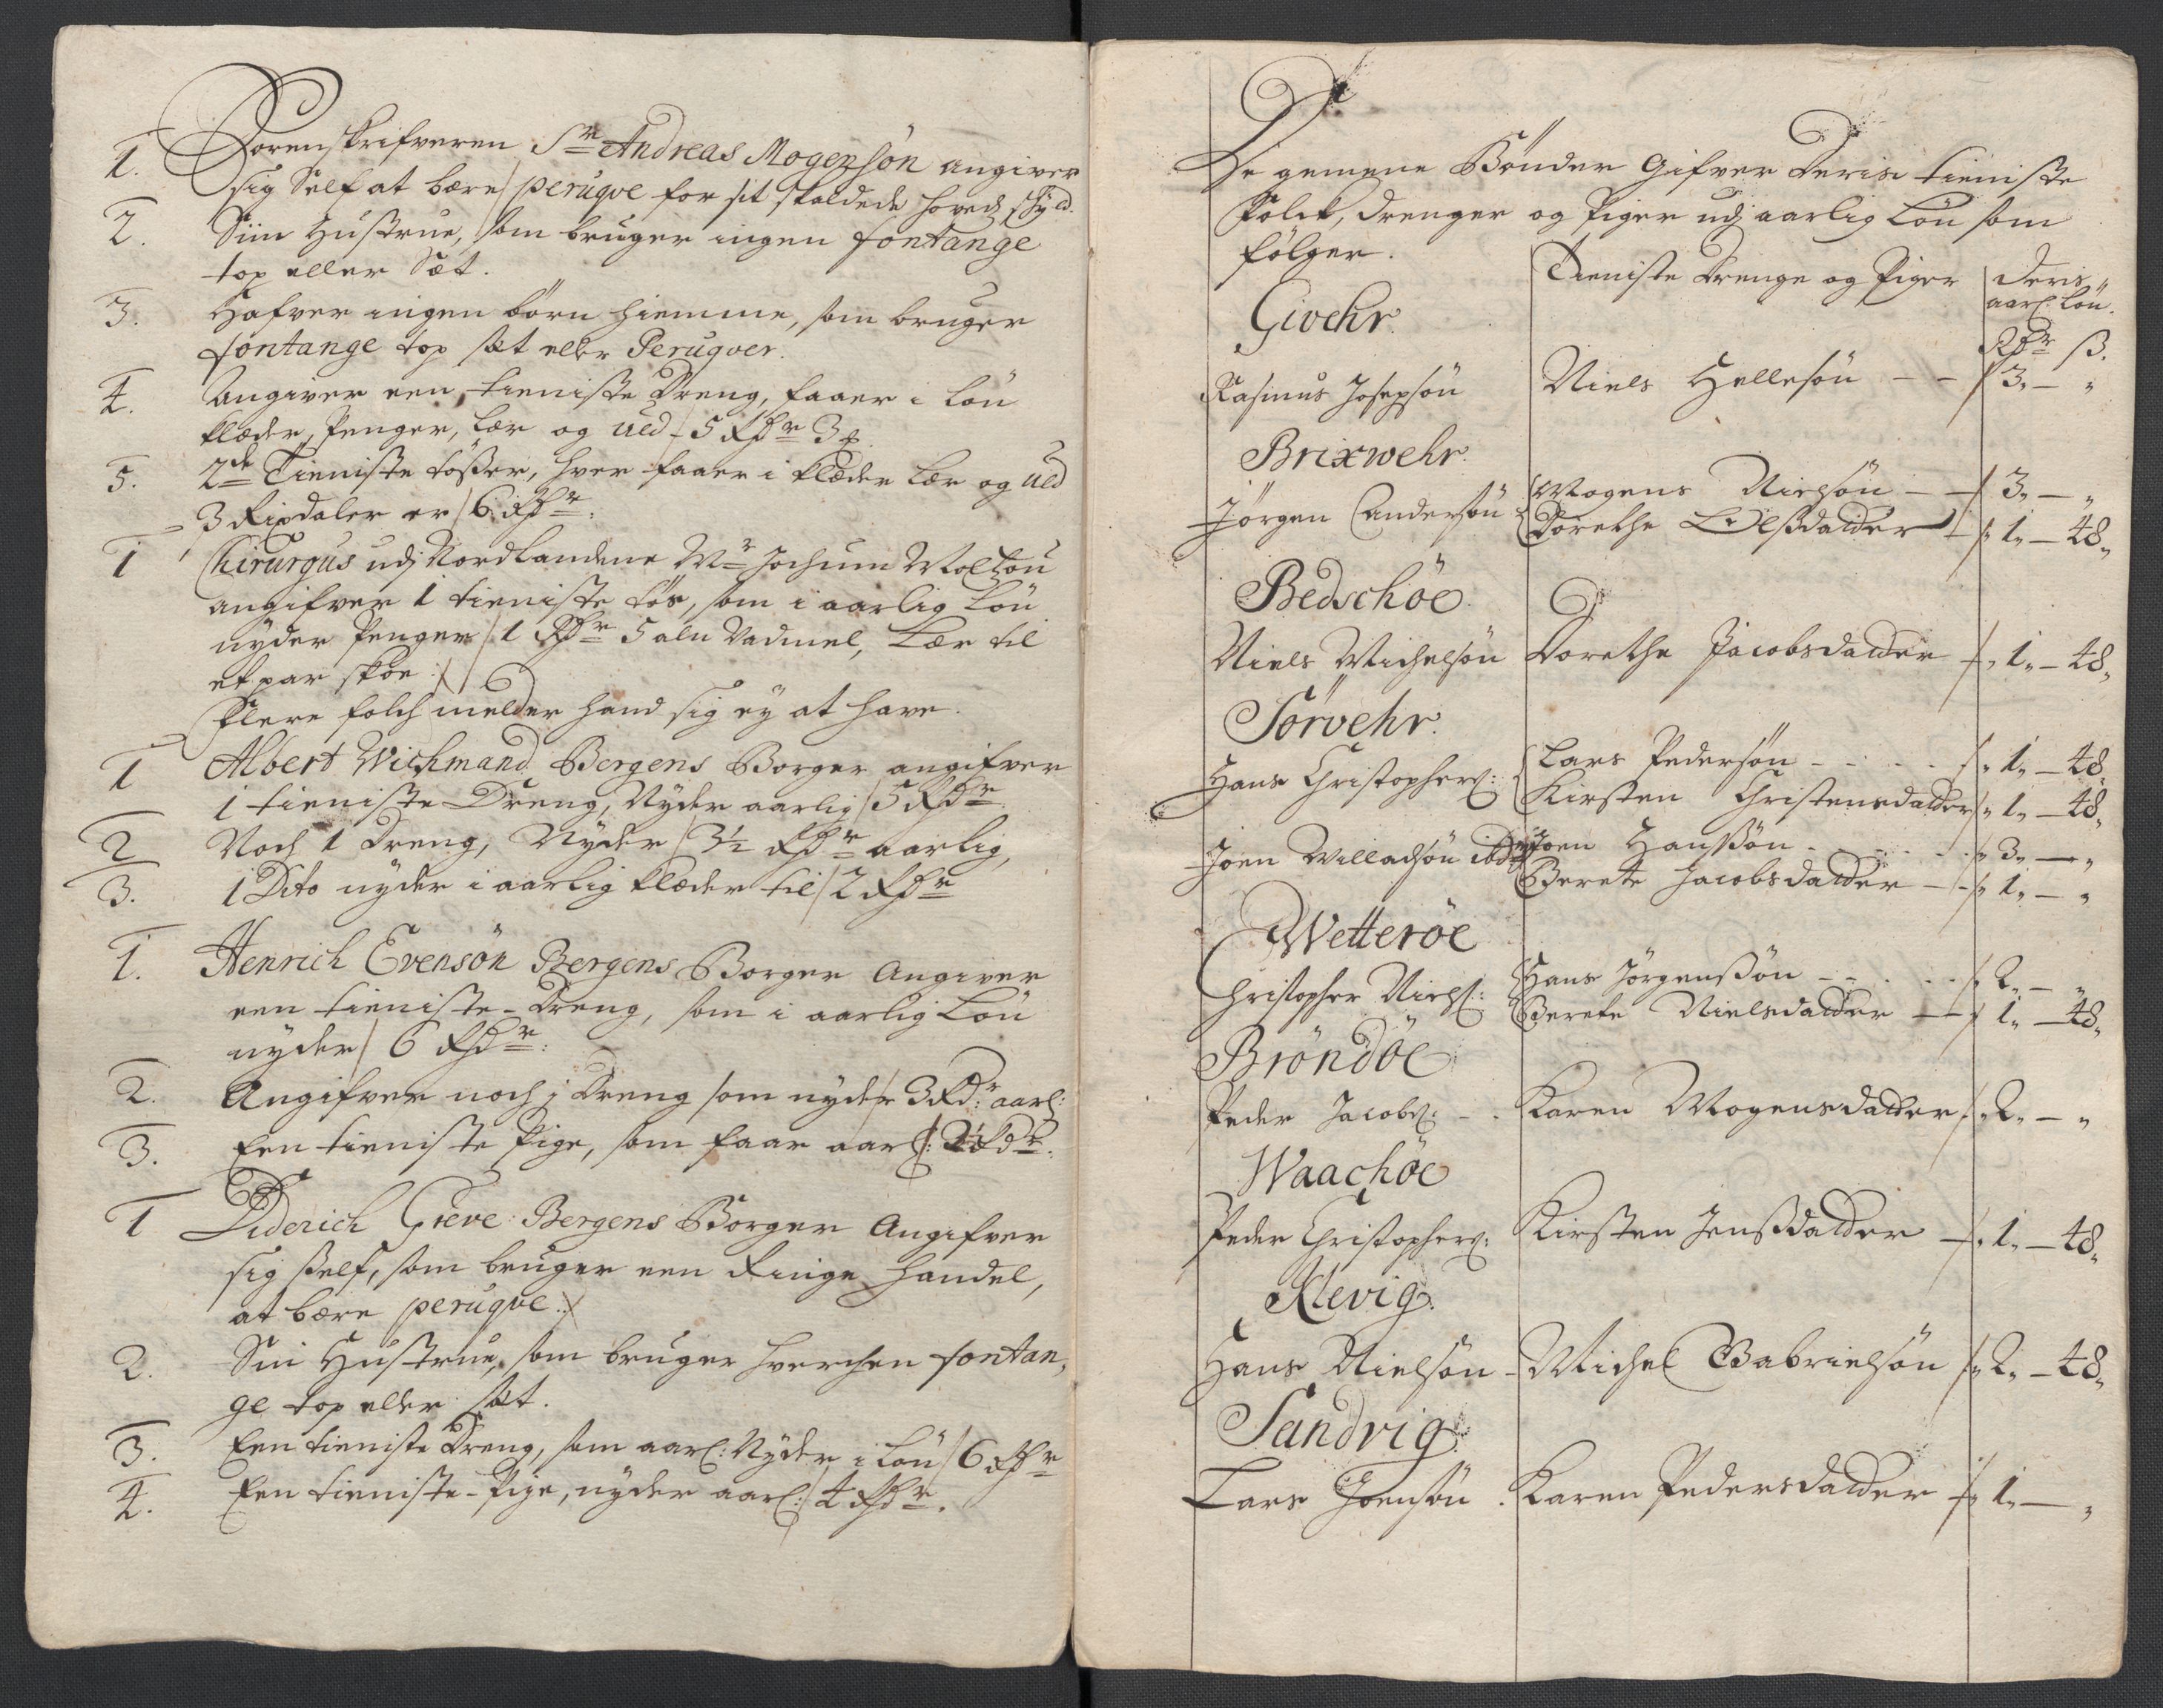 1. Sorenskrifveren Sr Andreas Mogensön angiver
sig Self at bære / peruqve for sit skaldede hoveds skyld.
2. Siin Hustrue, som bruger ingen fontange
top eller Sæt.
3. Hafver ingen börn hiemme, som bruger
fontange top sæt eller Peruqver.
4. Angiver een tieniste Dreng, faaer i Lön
klæder, Penger, Lær og Uld / 5 Rdr 3
5. 2de Tieniste tösser, hver faaer i klæder Lær og Uld
3 Rixdaler er / 6 Rdr.
1 Chirurgus udj Nordlandene Mr Jochum Moltzou
angifver 1 tieniste tös, som i aarlig Lön
nyder Penger / 1 Rdr 5 aln Vadmel, Lær til
et par skoe :/
Flere folch melder hand sig ey at have.
1 Albert Wichmand Bergens Borger angifver
1 tieniste Dreng, Nyder aarlig / 5 Rdr.
2 Noch 1 Dreng, Nyder / 3½ Rdr aarlig,
3. 1 Dito nyder i aarlig klæder til / 2 Rdr
1. Henrich Evensön Bergens Borger Angiver
een tieniste-Dreng, som i aarlig Lön
nyder / 6 Rdr:
2. Angifver noch j Dreng som nyder 3 Rdr: aarl:
3. Een tieniste Pige, som faar aarl: 2½ Rdr.
1 Diderich Greve Bergens Borger Angifver
sig Self, som bruger een Ringe Handel,
at bære peruqve :/
2. Sin Hustrue, som bruger hverchen fontan-
ge top eller sæt.
3. Een tieniste Dreng, som aarl: Nyder i Lön / 6 Rdr
4. Een tieniste-Pige, nyder aarl: / 4 Rdr.
De gemene Bönder Gifver Deris tieniste
Folck, Drenger og Piger udj aarlig Lön som
fölger.
Tieniste Drenge og Piger Deris
aarl: Lön.
Givehr. Rdr ß.
Rasmus Josepsön Niels Hellesön - - / 3. — "
Brixwehr.
Jörgen Andersön Mogens Nielsön - - / 3. — "
Dorethe Olsdatter - / 1. — 48.
Bedschöe
Niels Michelsön Dorethe Jacobsdatter / 1. — 48.
Sörvehr.
Hans Christophers: Lars Pedersön - - - / 1. — 48.
Kirsten Christensdatter / 1. — 48.
Joen Willadsön ibd Joen Hanssön - - - 3. — "
Berete Jacobsdatter - / 1. — "
Wetteröe
Christopher Niels: Hans Jörgenssön - - - / 2. — "
Berete Nielsdatter - / 1. — 48.
Bröndöe
Peder Jacobs: - - Karen Mogensdatter / 2. — "
Waachöe
Peder Christophers: Kirsten Jensdatter - / 1. — 48.
Klevig.
Hans Nielsön - Michel Gabrielsön / 2. — 48.
Sandvig.
Lars Joensön . Karen Pedersdatter / 1. — "